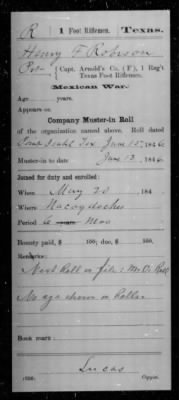 R 1 Foot Riflemen. Texas.
Henry F Robison
Pvt, Capt. Arnold's Co. (F), 1 Reg't
Texas Foot Riflemen.
Mexican War.
Age years.
Appears on
Company Muster-in Roll
of the organization named above. Roll dated
Point Isabel Tex June 15, 1846.
Muster-in to date June 13, 1846.
Joined for duty and enrolled:
When May 20 , 184
Where Nacogdoches
Period 6 years Mos
Bounty paid, $ 100; due, $ 100.
Remarks:
Next Roll on file: M.O. Roll
No age shown on Rolls
Book mark:
Lucas
Copyist.